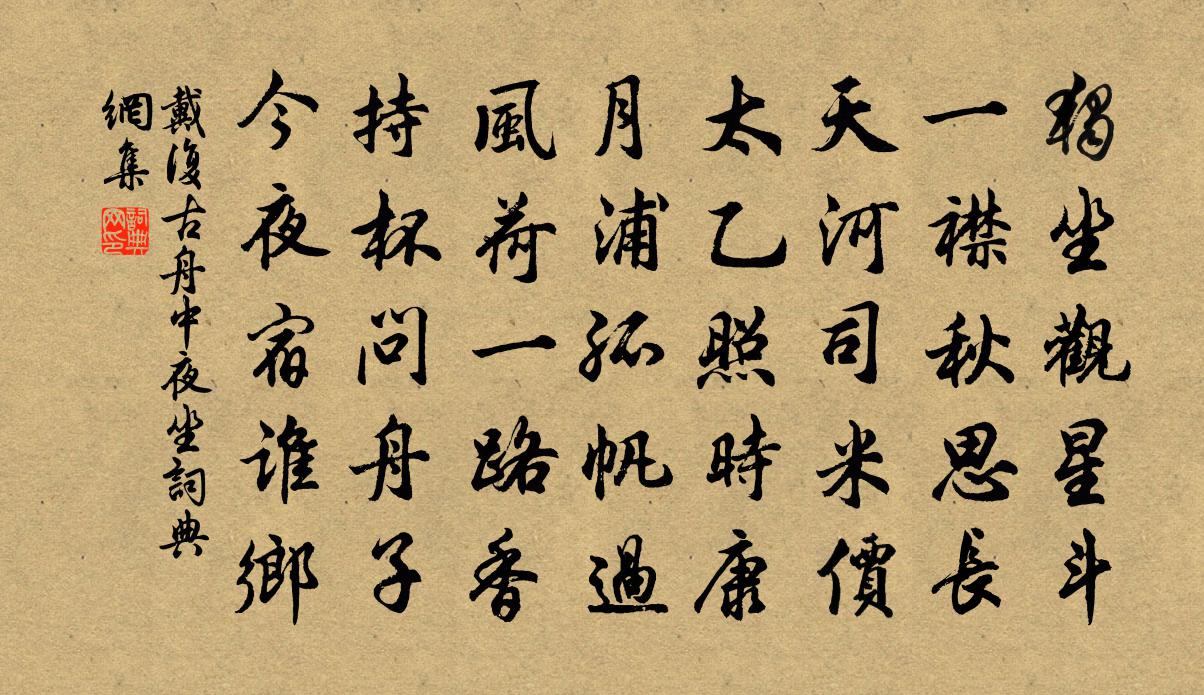 獨坐觀星斗
一襟秋思長
天河司米價
太乙照時康
月浦孤帆過
風荷一路香
持杯問舟子
今夜宿誰鄉
戴復古舟中夜坐詞典
網集
詞典
网印